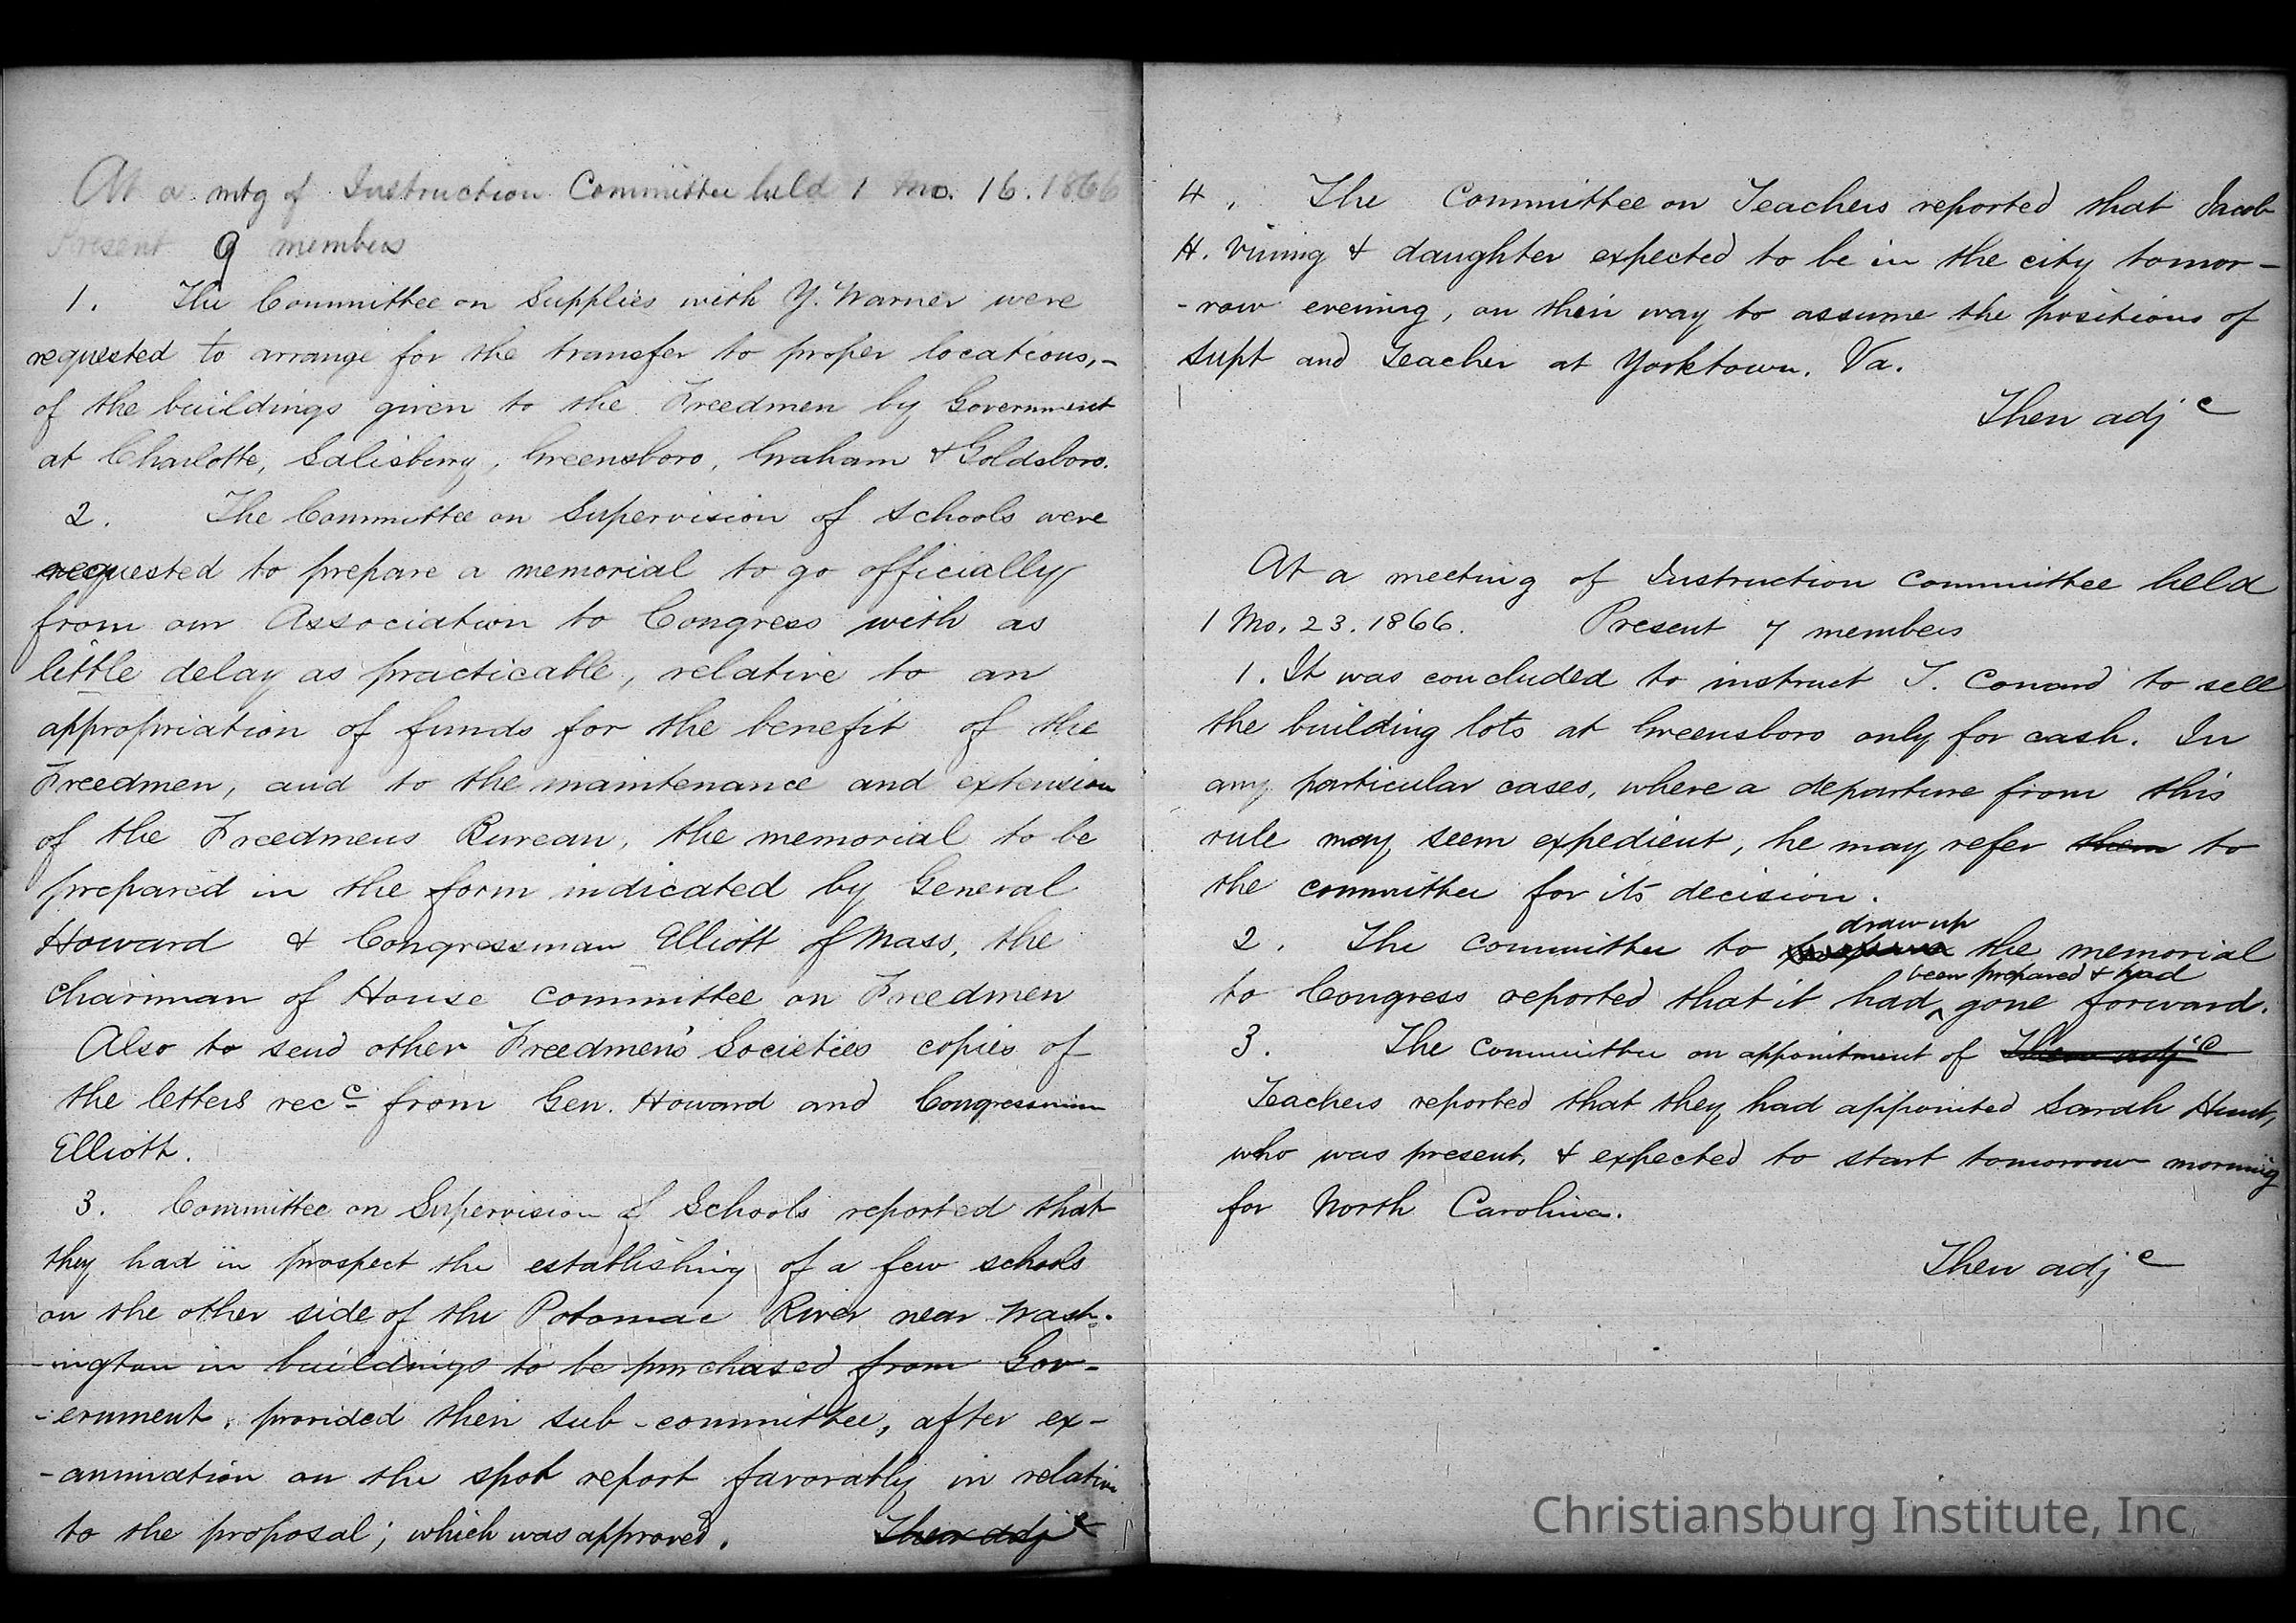 At a mtg of Instruction Committee held 1 Mo. 16. 1866
Present 9 members
1. The Committee on Supplies with Y. Warner were
requested to arrange for the transfer to proper locations,-
of the buildings given to the Freedmen by Government
at Charlotte, Salisbury, Greensboro, Graham & Goldsboro.
2. The Committee on Supervision of Schools were
requested to prepare a memorial to go officially
from our Association to Congress with as
little delay as practicable, relative to an
appropriation of funds for the benefit of the
Freedmen, and to the maintenance and extension
of the Freedmens Bureau, the memorial to be
prepared in the form indicated by General
Howard & Congressman Elliott of Mass, the
chairman of House committee on Freedmen
Also to send other Freedmen's Societies copies of
the letters rec^c from Gen. Howard and Congressman
Elliott.
3. Committee on Supervision of Schools reported that
they had in prospect the establishing of a few schools
on the other side of the Potomac River near Wash-
-ington in buildings to be purchased from Gov-
-ernment, provided their sub-committee, after ex-
-amination on the spot report favorably in relation
to the proposal; which was approved. Then adj^c
4. The Committee on Teachers reported that Jacob
H. Vining & daughter expected to be in the city tomor-
-row evening, on their way to assume the positions of
supt and teacher at Yorktown. Va.
Then adj^c
At a meeting of Instruction Committee held
1 Mo. 23. 1866. Present 7 members
1. It was concluded to instruct T. Conard to sell
the building lots at Greensboro only for cash. In
any particular cases, where a departure from this
rule may seem expedient, he may refer them to
the committee for its decision.
draw up
2. The Committee to prepare the memorial
been prepared & had
to Congress reported that it had ^ gone forward.
3. The Committee on appointment of Then adj^c
Teachers reported that they had appointed Sarah Hunt,
who was present, & expected to start tomorrow morning
for North Carolina.
Then adj^c
Christiansburg Institute, Inc.